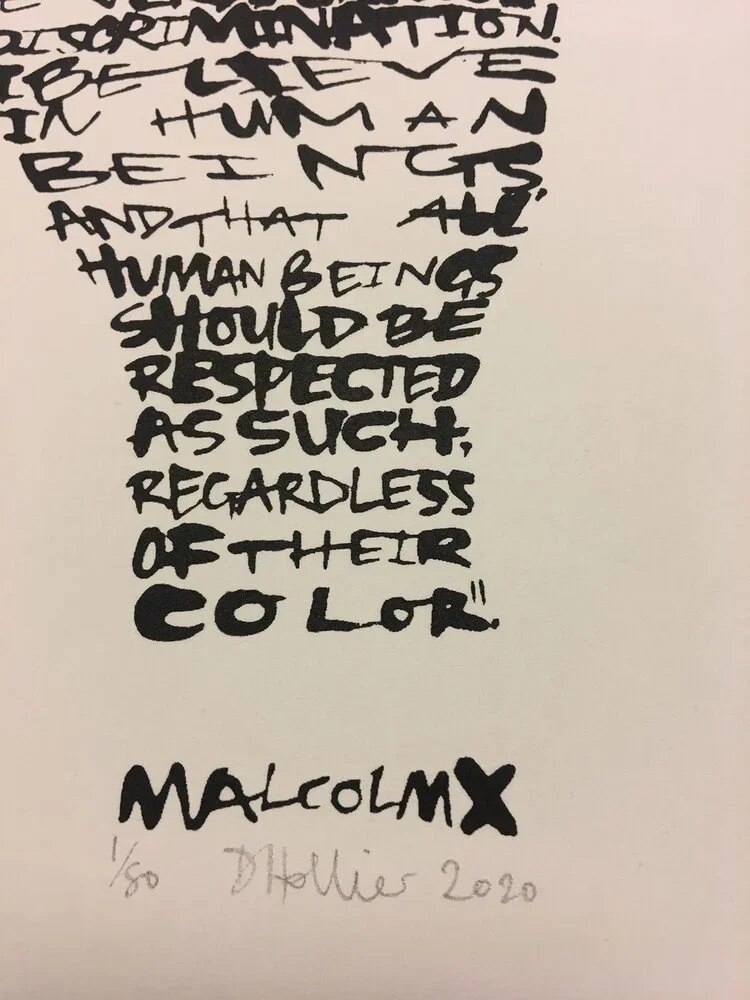 DISCRIMINATION.
I BELIEVE
IN HUMAN
BEINGS,
AND THAT ALL
HUMAN BEINGS
SHOULD BE
RESPECTED
AS SUCH,
REGARDLESS
OF THEIR
COLOR".
MALCOLM X
1/80 D Hollier 2020